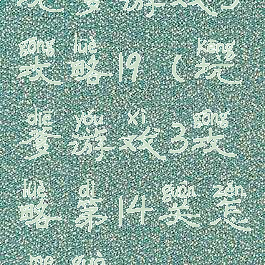 gōng lüè kēng
攻略19（坑
diē yóu xì gōng
爹游戏3攻
lüè dì guān zěn
略第14关怎